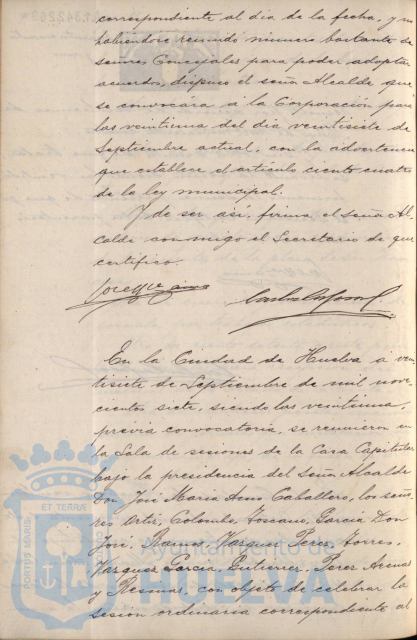 correspondiente al día de la fecha, y no
habiéndose reunido número bastante de
señores Concejales para poder adoptar
acuerdos, dispuso el señor Alcalde que
se convocara a la Corporación para
las veintiuna del día veintisiete de
Septiembre actual, con la advertencia
que establece el artículo ciento cuatro
de la ley municipal.
Y de ser así, firma el señor Al-
calde conmigo el Secretario de que
certifico.
En la Ciudad de Huelva a vein-
tisiete de Septiembre de mil nove-
cientos siete, siendo las veintiuna,
previa convocatoria, se reunieron en
la Sala de sesiones de la Casa Capitular
bajo la presidencia del Señor Alcalde
Don José María Amo Caballero, los seño-
res Ortiz, Colombo, Toscano, García Don
José, Ramos, Vázquez Pérez, Torres,
Vázquez García, Gutiérrez, Pérez Arenas
y Resinas, con objeto de celebrar la
sesión ordinaria correspondiente al
PORTUS MARIS
ET TERRÆ
Ayuntamiento de
HUELVA